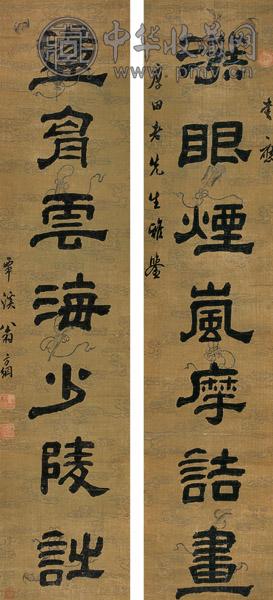 中华收藏网
眼煙嵐摩詰畫
田老先生雅鑒
胷雲海少陵詩
覃溪翁方綱